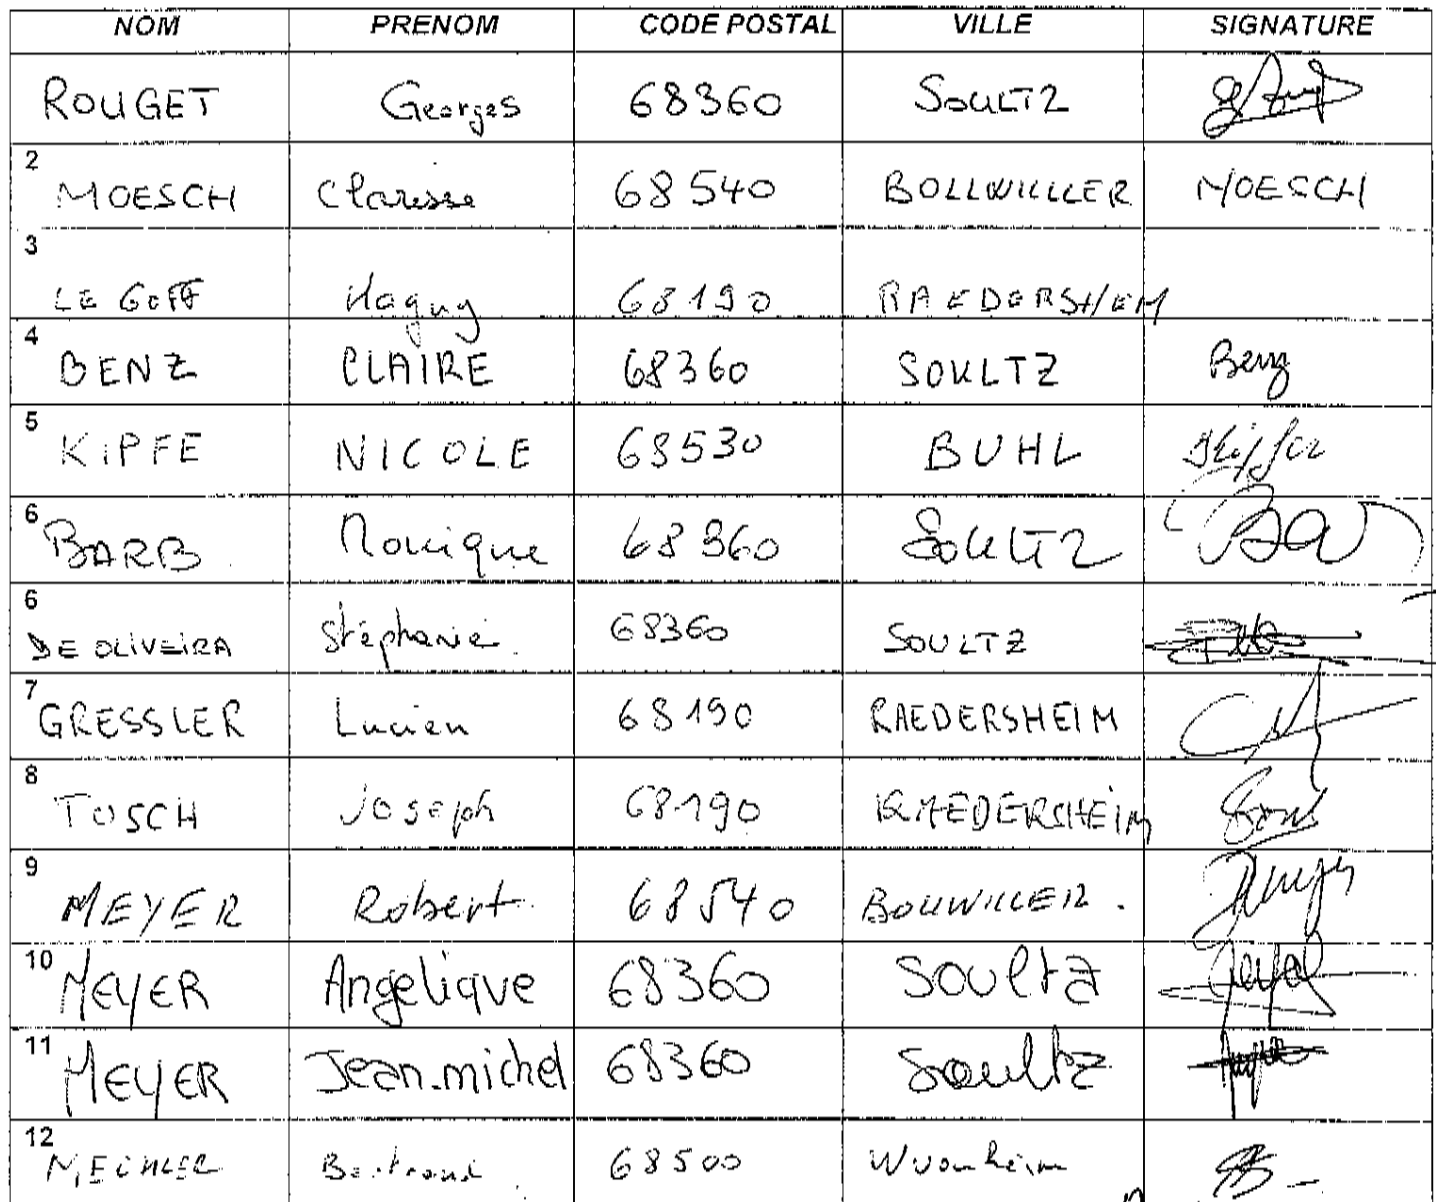 NOM PRENOM CODE POSTAL VILLE SIGNATURE
ROUGET Georges 68360 SOULTZ
2 MOESCH Clarisse 68540 BOLLWILLLER MOESCH
3 LE GOFF 68190 RAEDERSHEM
4 BENZ CLAIRE 68360 SOULTZ Benz
5 KIPFE NICOLE 68530 BUHL
6 BARB Monique 68360 SOULTZ
6 DE OLIVEIRA Stéphanie 68360 SOULTZ
7 GRESSLER Lucien 68190 RAEDERSHEIM
8 TOSCH Joseph 68190 RAEDERSHEIM
9 MEYER Robert 68540 BOLLWILLER.
10 MEYER Angelique 68360 Soultz
11 MEYER Jean-michel 68360 Soultz
12 68500 Wuenheim